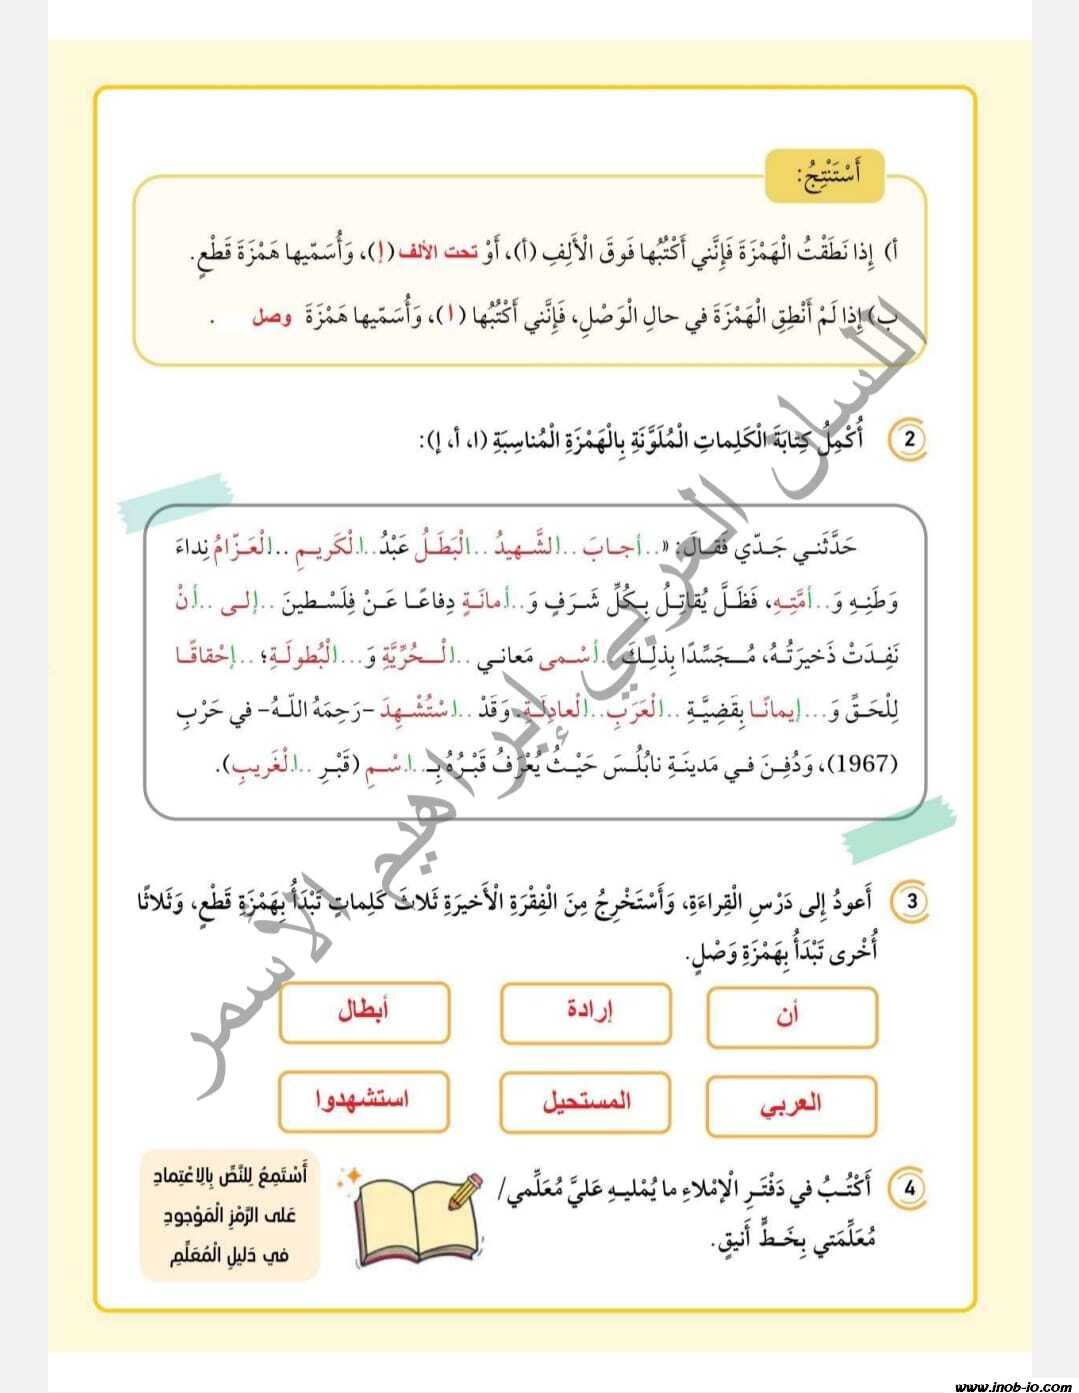 أَسْتَنْتِجُ:
أ) إِذا نَطَقْتُ الْهَمْزَةَ فَإِنَّني أَكْتُبُها فَوقَ الْأَلِفِ (أ)، أَوْ تحت الألف (إ)، وَأُسَمّيها هَمْزَةَ قَطْعٍ.
ب) إِذا لَمْ أَنْطِقِ الْهَمْزَةَ في حالِ الْوَصْلِ، فَإِنَّني أَكْتُبُها (ا)، وَأُسَمّيها هَمْزَةَ وصل .
2 أُكْمِلُ كِتابَةَ الْكَلِماتِ الْمُلَوَّنَةِ بِالْهَمْزَةِ الْمُناسِبَةِ (ا، أ، إ):
حَدَّثَني جَدّي فَقالَ: «..أجابَ ..الشَّهيدُ ..الْبَطَلُ عَبْدُ..الْكَريمِ ..الْعَزّامُ نِداءَ
وَطَنِهِ وَ..أمَّتِهِ، فَظَلَّ يُقاتِلُ بِكُلِّ شَرَفٍ وَ..أمانَةٍ دِفاعًا عَنْ فِلَسْطينَ ..إلى ..أنْ
نَفِدَتْ ذَخيرَتُهُ، مُجَسِّدًا بِذلِكَ ..أسْمى مَعاني ..الْحُرِّيَّةِ وَ...الْبُطولَةِ؛ ..إحْقاقًا
لِلْحَقِّ وَ...إيمانًا بِقَضِيَّةِ ..الْعَرَبِ..الْعادِلَةِ. وَقَدْ ..اسْتُشْهِدَ -رَحِمَهُ اللّهُ- في حَرْبِ
(1967)، وَدُفِنَ في مَدينَةِ نابُلُسَ حَيْثُ يُعْرَفُ قَبْرُهُ بِـ..اسْمِ (قَبْرِ ..الْغَريبِ).
3 أَعودُ إِلى دَرْسِ الْقِراءَةِ، وَأَسْتَخْرِجُ مِنَ الْفِقْرَةِ الْأَخيرَةِ ثَلاثَ كَلِماتٍ تَبْدَأُ بِهَمْزَةِ قَطْعٍ، وَثَلاثًا
أُخْرى تَبْدَأُ بِهَمْزَةِ وَصْلٍ.
أن إرادة أبطال
العربي المستحيل استشهدوا
4 أَكْتُبُ في دَفْتَرِ الْإِمْلاءِ ما يُمْليهِ عَلَيَّ مُعَلِّمي/
مُعَلِّمَتي بِخَطٍّ أَنيقٍ.
أَسْتَمِعُ لِلنَّصِّ بِالِاعْتِمادِ
عَلى الرَّمْزِ الْمَوْجودِ
في دَليلِ الْمُعَلِّمِ
اللسان العربي إبراهيم الأسمر
www.jnob-jo.com